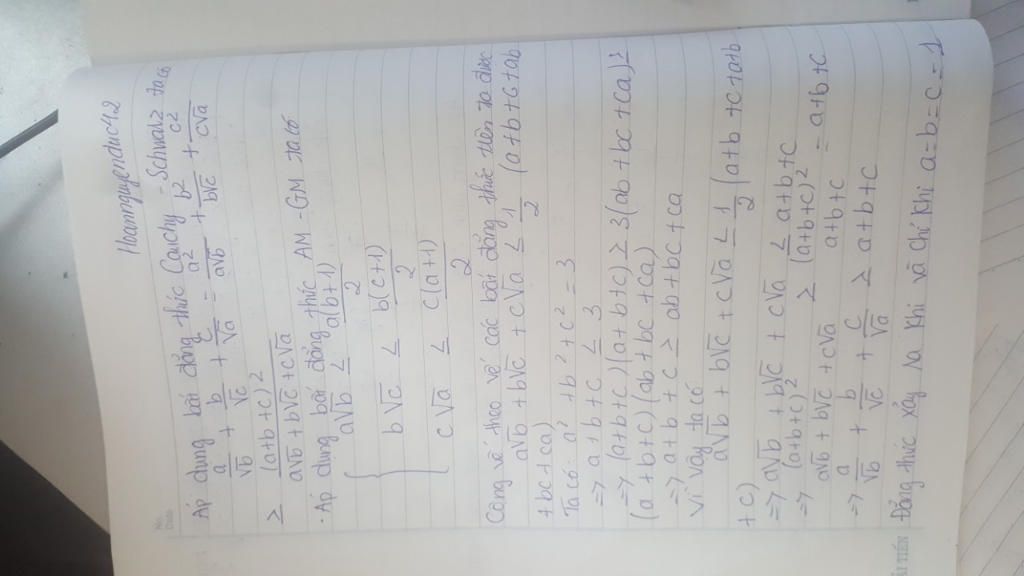 Hoannguyenduc12
Áp dụng bất đẳng thức Cauchy - Schwarz ta có
a/√b + b/√c + c/√a = a²/a√b + b²/b√c + c²/c√a
≥ (a+b+c)²/(a√b + b√c + c√a)
· Áp dụng bất đẳng thức AM - GM ta có
{ a√b ≤ a(b+1)/2
b√c ≤ b(c+1)/2
c√a ≤ c(a+1)/2
Cộng vế theo vế các bất đẳng thức trên ta được
a√b + b√c + c√a ≤ 1/2 (a+b+c+ab
+bc+ca)
Ta có: a² + b² + c² = 3
=> a+b+c ≤ 3
=> (a+b+c)(a+b+c) ≥ 3(ab+bc+ca) ≥
(a+b+c)(ab+bc+ca)
=> a+b+c ≥ ab+bc+ca
Vì vậy ta có
a√b + b√c + c√a ≤ 1/2 (a+b+c+a+b
+c)
=> a√b + b√c + c√a ≤ a+b+c
=> (a+b+c)²/(a√b + b√c + c√a) ≥ (a+b+c)²/(a+b+c) = a+b+c
=> a/√b + b/√c + c/√a ≥ a+b+c
Đẳng thức xảy ra khi và chỉ khi a=b=c=1
No.
Date
ẢI TIẾN